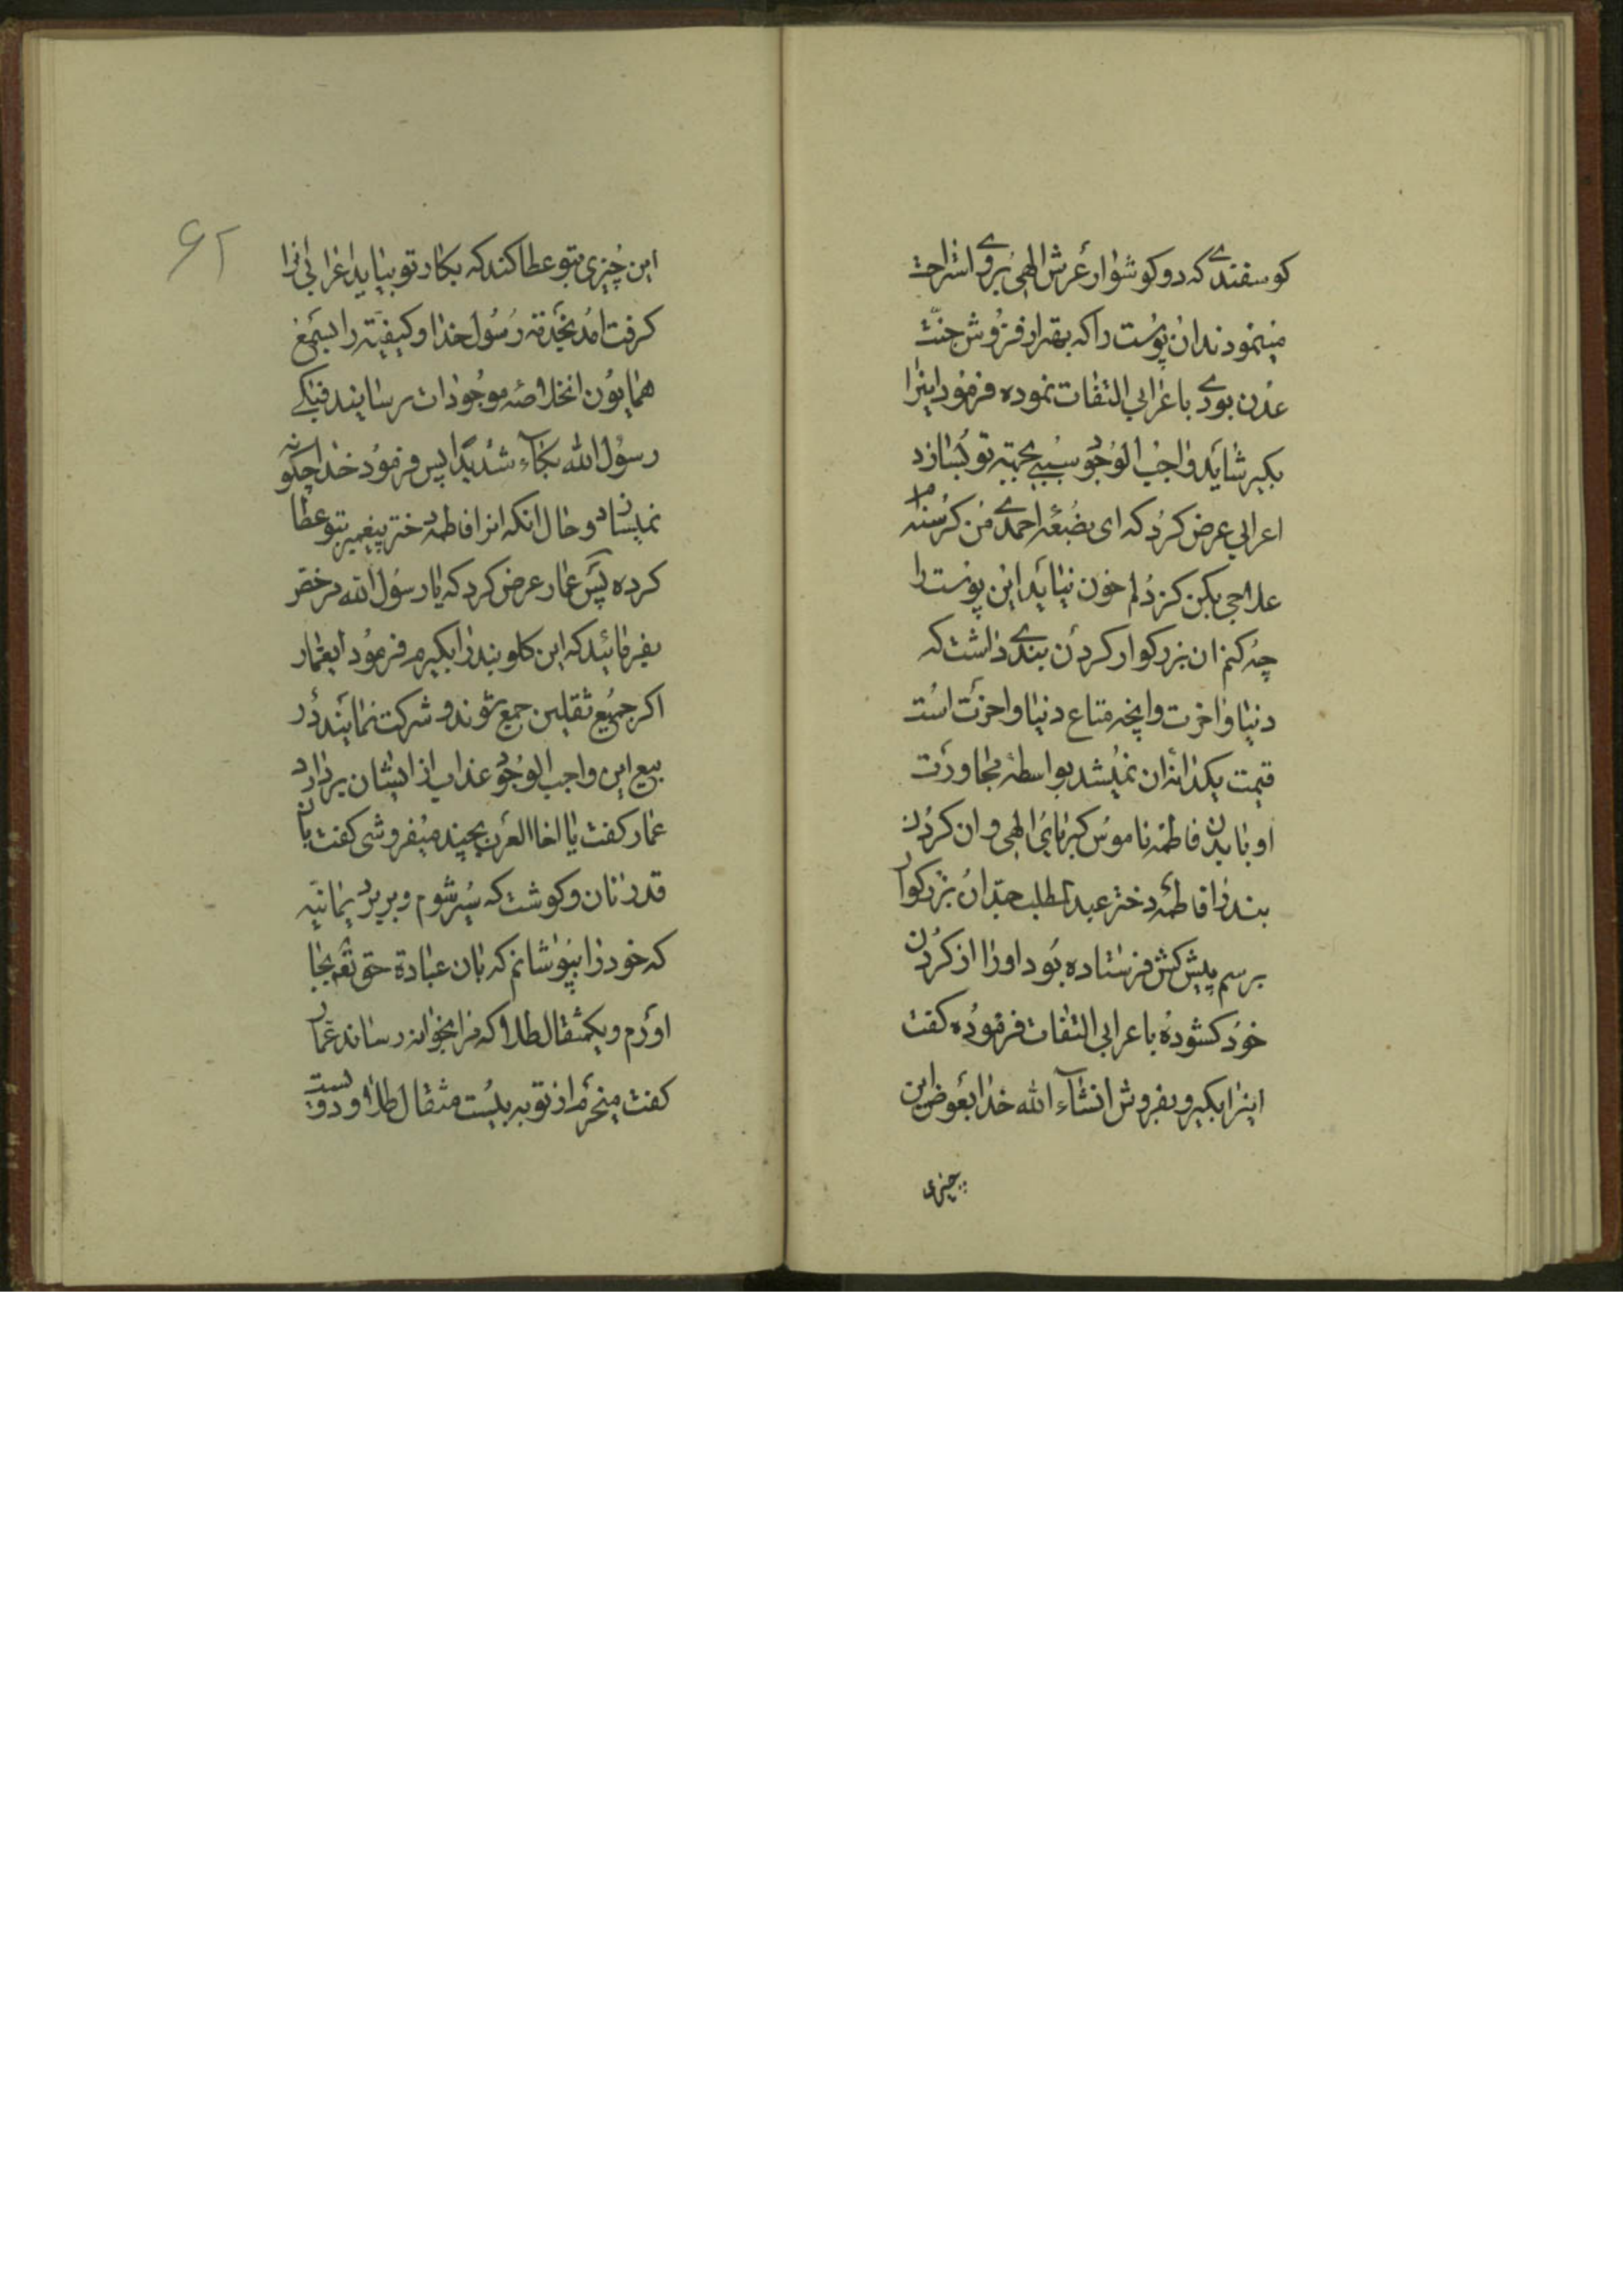 کوسفندی که دو کوشوار عرش الهی بروی استراحت
مینمودند ان پوست را که بهتر از فروش جنت
عدن بودی باعرابی التفات نموده فرمود اینرا
بکیر شاید واجب الوجود سببی بجهته تو بسازد
اعرابی عرض کرد که ای بضعه احمدی من کرسنه‌ام
علاجی بکن کز دلم خون نیاید این پوست را
چه کنم ان بزرکوار کردن بندی داشت که
دنیا و اخرت وانچه متاع دنیا و اخرت است
قیمت یکدانه ان نمیشد بواسطه مجاورت
او با بدن فاطمه ناموس کبریائی الهی و ان کردن
بند را فاطمه دختر عبدالمطلب جد ان بزرکوار
برسم پیش کش فرستاده بود اورا از کردن
خود کشوده باعرابی التفات فرموده کفت
اینرا بکیر و بفروش انشاء الله خدا بعوض این
چیزی
۶۲
این چیزی بتو عطا کند که بکار تو بیاید اعرابی انرا
کرفت امد بخدمة رسول خدا و کیفیته را بسمع
همایون انخلاصه موجودات رسانید فبکی
رسول الله بکاء شدیدا پس فرمود خدا چکونه
نمیسازد و حال انکه انرا فاطمه دختر پیغمبر بتو عطا
کرده پس عمار عرض کرد که یا رسول الله مرخص
بفرمائید که این کلوبند را بکیرم فرمود ایعمار
اکر جمیع ثقلین جمع شوند و شرکت نمایند در
بیع این واجب الوجود عذاب از ایشان بردارد
عمار کفت یا اخا العرب بچند میفروشی کفت بان
قدر نان و کوشت که سیر شوم و برید یمانیه
که خود را بپوشانم که بان عبادة حق تعه بجا
اورم و یکمثقال طلا که مرا بخوانه رساند عمار
کفت میخرم از تو به بیست مثقال طلا و دویست